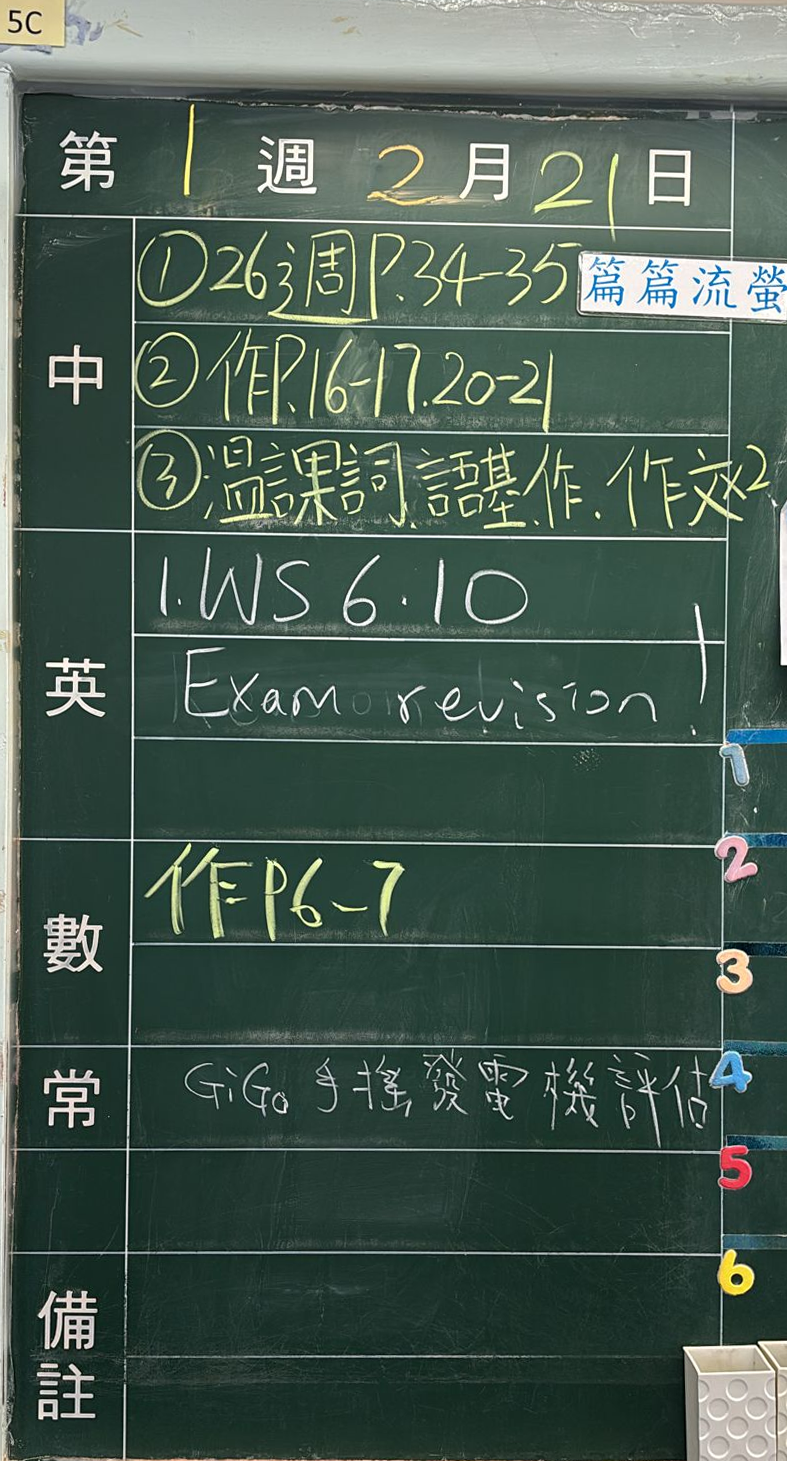 5C
第1週2月21日
中
①26週P.34-35
篇篇流螢
②作P.16-17.20-21
③溫課詞、語基、作、作文x2
英
1.WS 6.10
Exam revision!
數
作P6-7
常
GiGo手搖發電機評估
備註
1
2
3
4
5
6